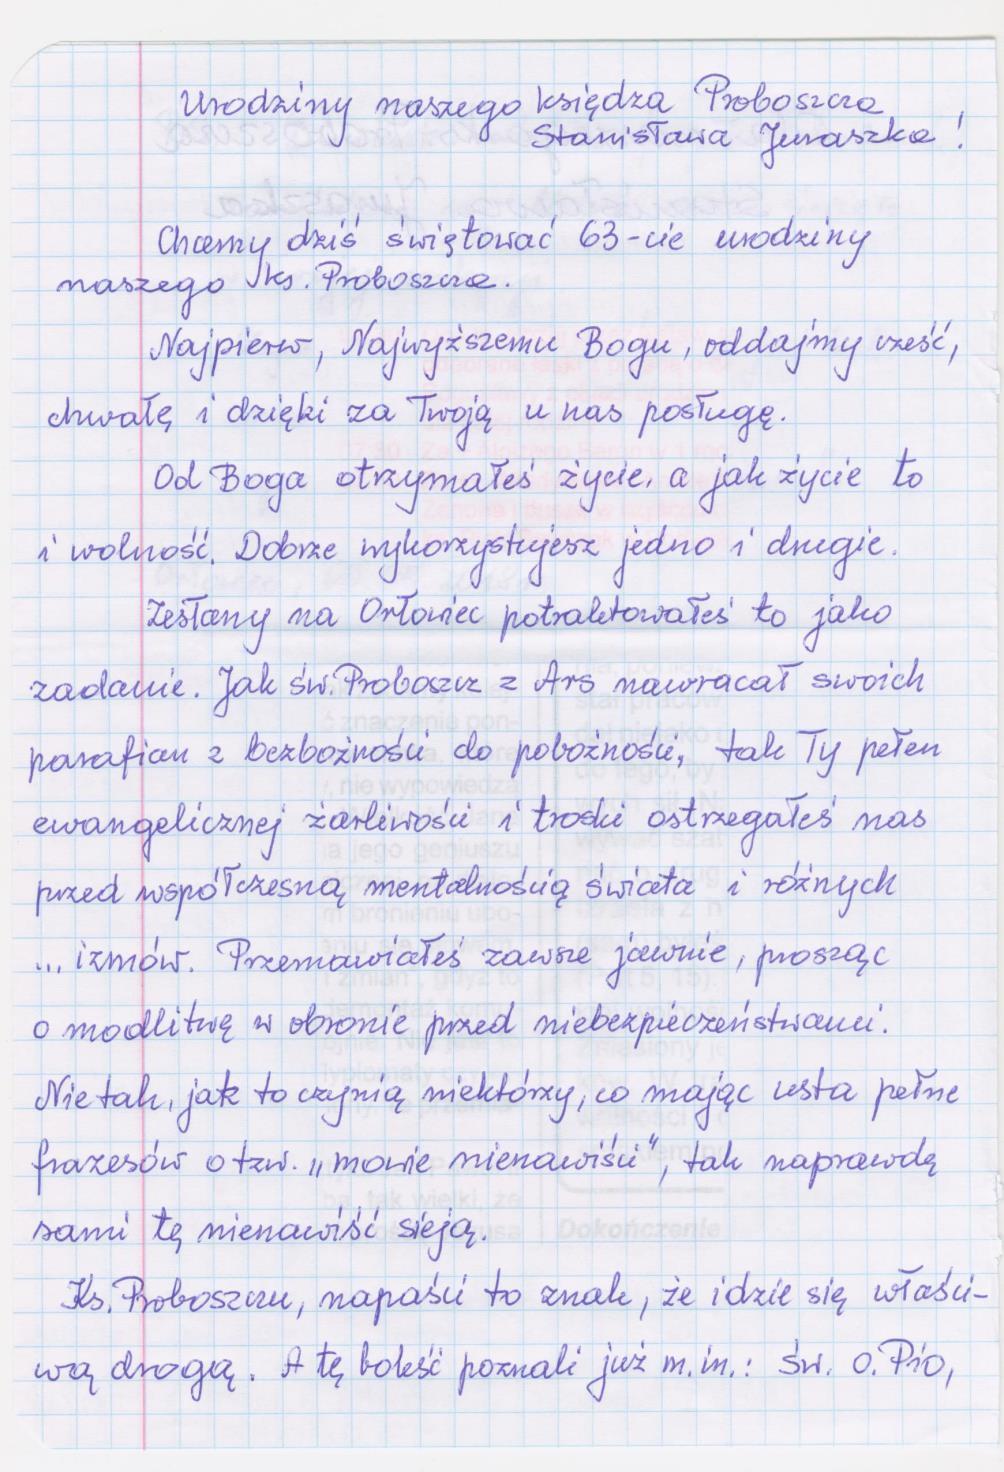 Urodziny naszego księdza Proboszcza
Stanisława Juraszka!
Chcemy dziś świętować 63-cie urodziny
naszego ks. Proboszcza.
Najpierw, Najwyższemu Bogu, oddajmy cześć,
chwałę i dzięki za Twoją u nas posługę.
Od Boga otrzymałeś życie, a jak życie to
i wolność. Dobrze wykorzystujesz jedno i drugie.
Zesłany na Orłowiec potraktowałeś to jako
zadanie. Jak św. Proboszcz z Ars nawracał swoich
parafian z bezbożności do pobożności, tak Ty pełen
ewangelicznej żarliwości i troski ostrzegałeś nas
przed współczesną mentalnością świata i różnych
... izmów. Przemawiałeś zawsze jawnie, prosząc
o modlitwę w obronie przed niebezpieczeństwami.
Nie tak, jak to czynią niektórzy, co mając usta pełne
frazesów o tzw. „mowie nienawiści”, tak naprawdę
sami tę nienawiść sieją.
Ks. Proboszczu, napaści to znak, że idzie się właści-
wą drogą. A tę boleść poznali już m.in.: św. O. Pio,